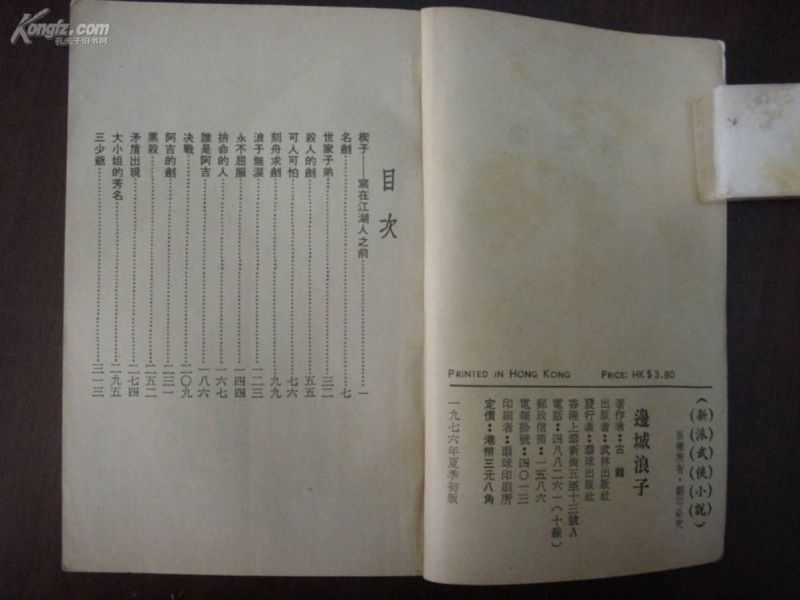 Kongfz.com
孔夫子旧书网
目次
楔子——寫在江湖人之前……一
名劍……七
世家子弟……三二
殺人的劍……五五
可人可怕……七六
刻舟求劍……九九
浪子無淚……一二三
永不屈服……一四四
拚命的人……一六七
誰是阿吉……一八六
決戰……二〇九
阿吉的劍……二三一
黑殺……二五二
矛盾出現……二七四
大小姐的芳名……二九五
三少爺……三一三
PRINTED IN HONG KONG PRICE: HK$3.80
(新派武俠小說)
版權所有·翻印必究
邊城浪子
著作者：古龍
出版者：武林出版社
發行者：環球出版社
香港上環新街五至十三號A
電話：四八八二六一（十線）
郵政信箱：一五八六
電報掛號：四〇一三
印刷者：環球印刷所
定價：港幣三元八角
一九七六年夏季初版